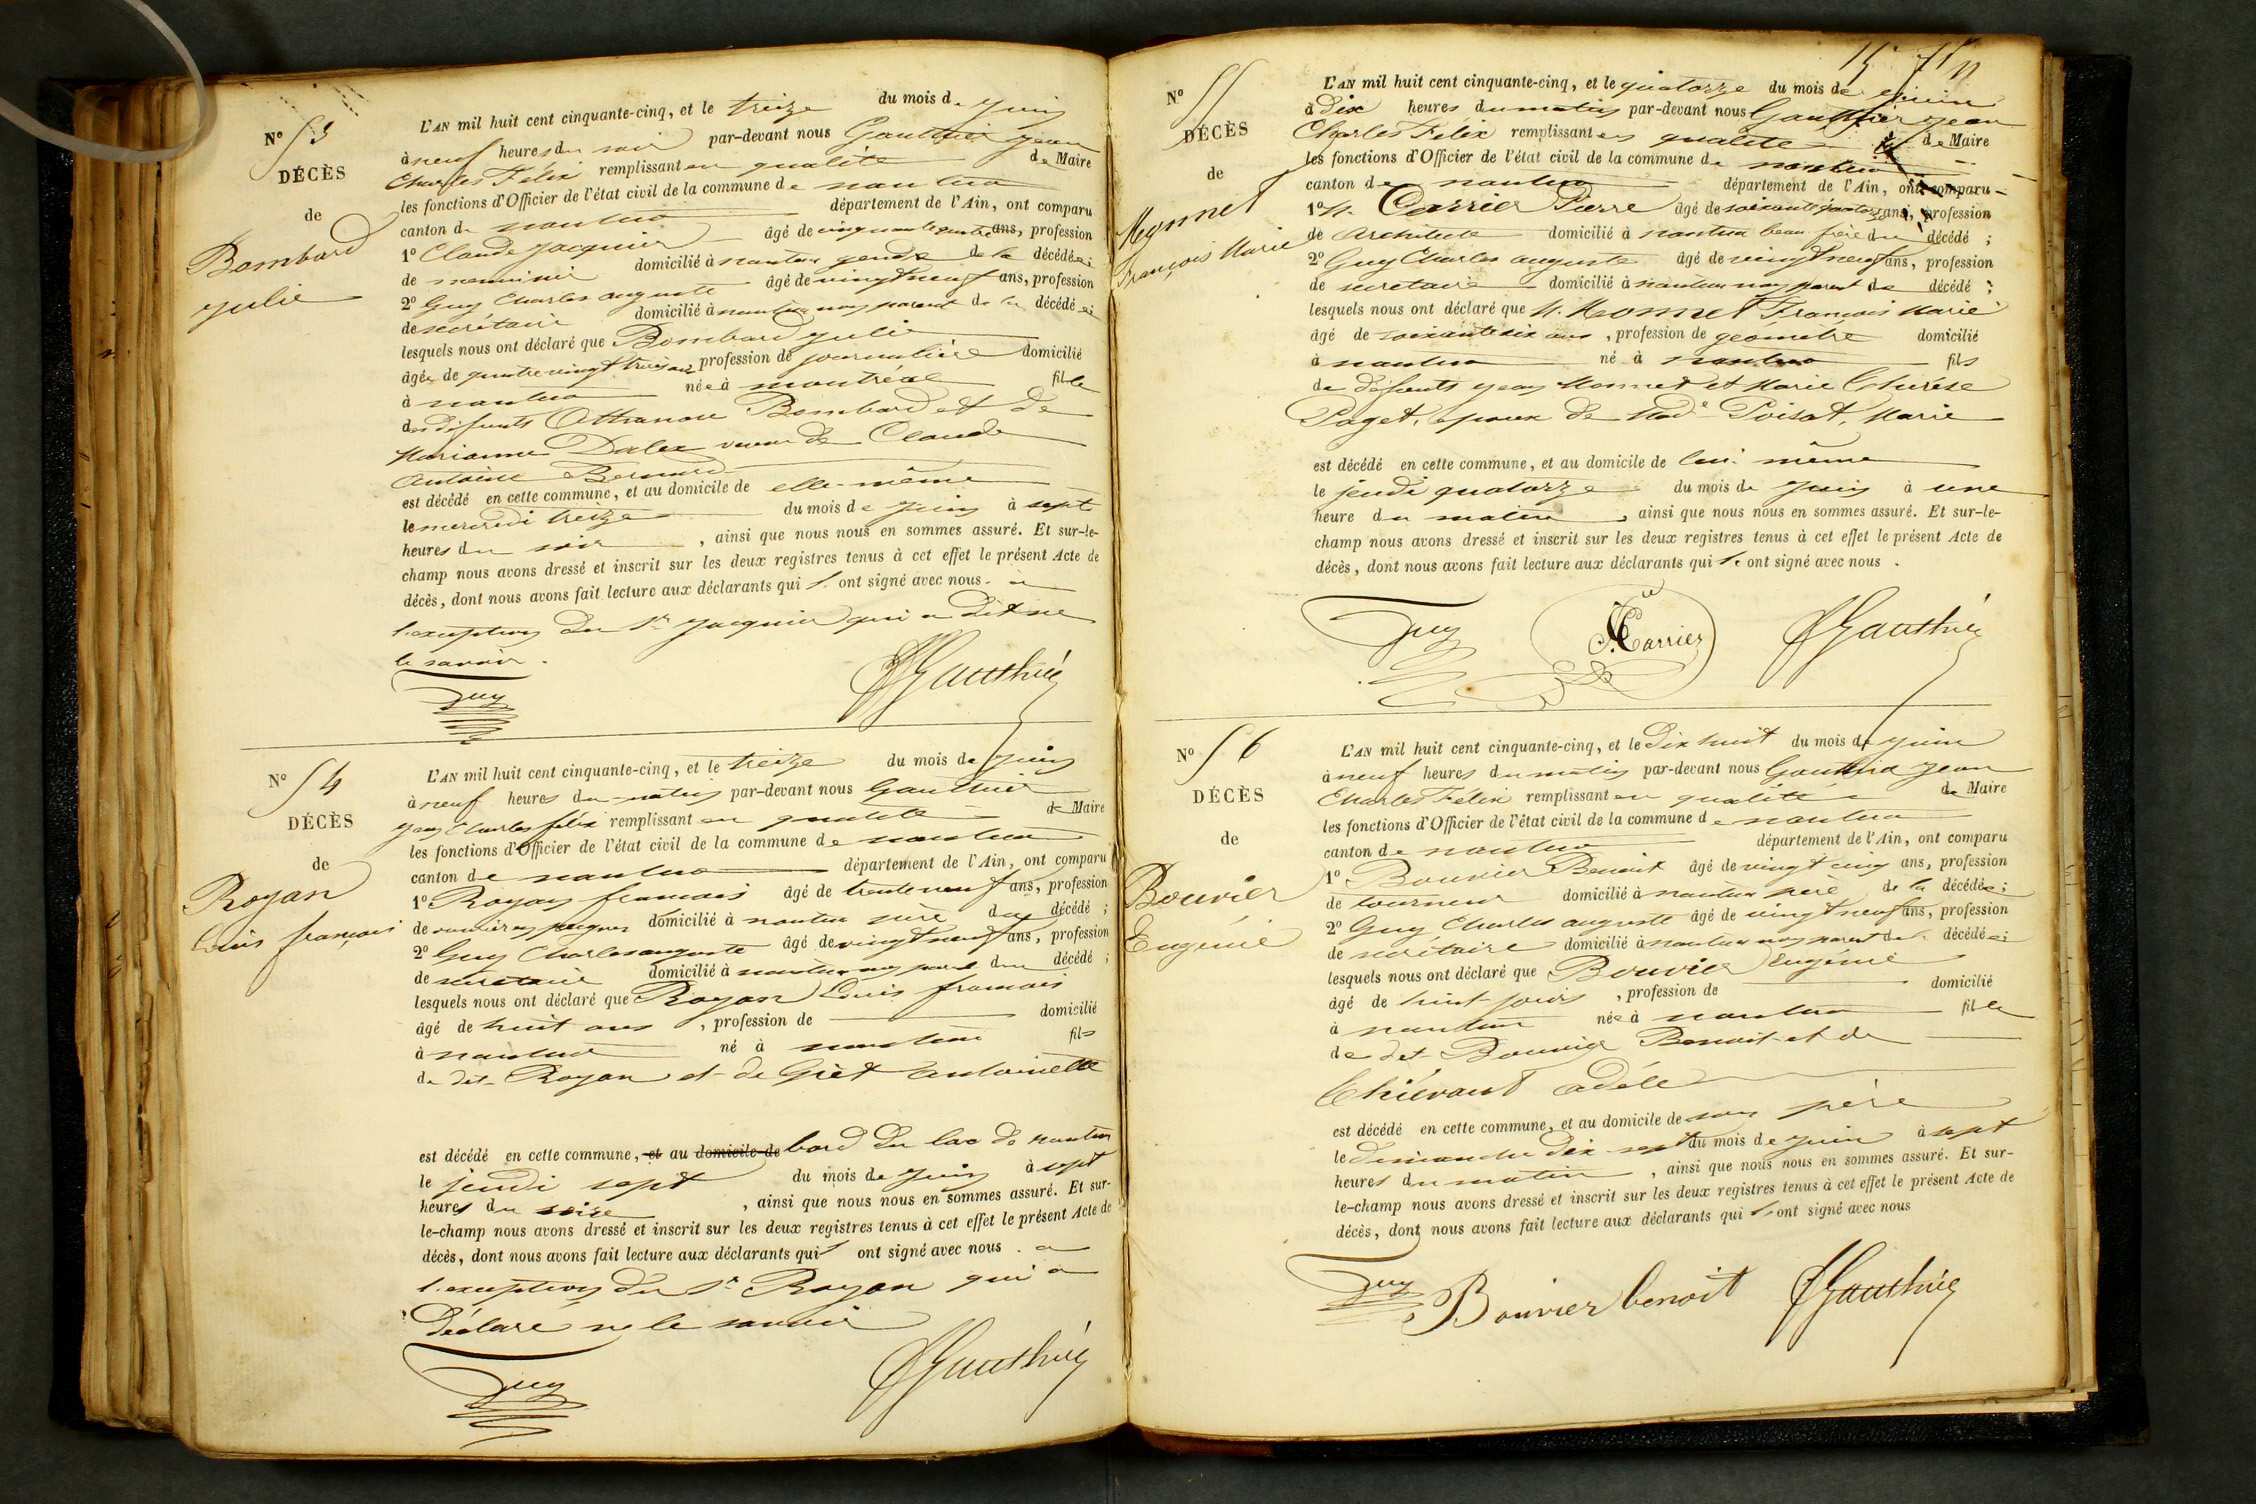 N° 53
DÉCÈS
de
Bombard
Julie
L'AN mil huit cent cinquante-cinq, et le treize du mois de Juin
à neuf heures du soir par-devant nous Gauthier Jean
Charles Félix remplissant en qualité de Maire
les fonctions d'Officier de l'état civil de la commune de nantua
canton de nantua département de l'Ain, ont comparu
1° Claude Jacquier âgé de cinquante quatre ans, profession
de menuisier domicilié à nantua gendre de la décédée;
2° Guy Charles auguste âgé de vingt neuf ans, profession
de secrétaire domicilié à nantua non parent de la décédée;
lesquels nous ont déclaré que Bombard Julie
âgée de quatre vingt trois ans, profession de journalière domicilié
à nantua née à montréal fille
des défunts Bombard et de
Marianne Dalex veuve de Claude
Antoine Bernard
est décédé en cette commune, et au domicile de elle-même
le mercredi treize du mois de Juin à sept
heures du soir, ainsi que nous nous en sommes assuré. Et sur-le-
champ nous avons dressé et inscrit sur les deux registres tenus à cet effet le présent Acte de
décès, dont nous avons fait lecture aux déclarants qui l' ont signé avec nous. a
l'exception du Sr Jacquier qui a dit ne
le savoir.
Guy Gauthier
N° 54
DÉCÈS
de
Royan
Louis françois
L'AN mil huit cent cinquante-cinq, et le treize du mois de Juin
à neuf heures du matin par-devant nous Gauthier
Jean Charles félix remplissant en qualité de Maire
les fonctions d'Officier de l'état civil de la commune de nantua
canton de nantua département de l'Ain, ont comparu
1° Royan francois âgé de trente neuf ans, profession
de ouvrier en peignes domicilié à nantua père du décédé;
2° Guy Charles auguste âgé de vingt neuf ans, profession
de secrétaire domicilié à nantua non parent du décédé;
lesquels nous ont déclaré que Royan Louis francois
âgé de huit ans, profession de domicilié
à nantua né à nantua fils
de dit Royan et de Griet Antoinette
est décédé en cette commune, et au domicile de bord du lac de nantua
le jeudi sept du mois de Juin à sept
heures du soire, ainsi que nous nous en sommes assuré. Et sur-
le-champ nous avons dressé et inscrit sur les deux registres tenus à cet effet le présent Acte de
décès, dont nous avons fait lecture aux déclarants qui l' ont signé avec nous. a
l'exception du Sr Royan qui a
déclaré ne le savoir
Guy Gauthier
N° 55
DÉCÈS
de
Monnet
François Marie
L'AN mil huit cent cinquante-cinq, et le quatorze du mois de Juin
à dix heures du matin par-devant nous Gauthier Jean
Charles Félix remplissant en qualité de Maire
les fonctions d'Officier de l'état civil de la commune de nantua
canton de nantua département de l'Ain, ont comparu
1° M. Carrier Pierre âgé de soixante quatorze ans, profession
de Architecte domicilié à nantua beau frère du décédé;
2° Guy Charles auguste âgé de vingt neuf ans, profession
de secretaire domicilié à nantua non parent de décédé;
lesquels nous ont déclaré que M. Monnet François Marie
âgé de soixante six ans, profession de géomètre domicilié
à nantua né à nantua fils
de défunts Jean Monnet et Marie Thérèse
Paget, époux de Made Poisat, Marie
est décédé en cette commune, et au domicile de lui même
le jeudi quatorze du mois de Juin à une
heure du matin, ainsi que nous nous en sommes assuré. Et sur-le-
champ nous avons dressé et inscrit sur les deux registres tenus à cet effet le présent Acte de
décès, dont nous avons fait lecture aux déclarants qui l' ont signé avec nous.
Guy Carrier Gauthier
N° 56
DÉCÈS
de
Bouvier
Eugénie
L'AN mil huit cent cinquante-cinq, et le dix huit du mois de Juin
à neuf heures du matin par-devant nous Gauthier Jean
Charles Félix remplissant en qualité de Maire
les fonctions d'Officier de l'état civil de la commune de nantua
canton de nantua département de l'Ain, ont comparu
1° Bouvier Benoit âgé de vingt cinq ans, profession
de tourneur domicilié à nantua père de la décédée;
2° Guy Charles auguste âgé de vingt neuf ans, profession
de secrétaire domicilié à nantua non parent de décédée;
lesquels nous ont déclaré que Bouvier Eugénie
âgé de huit jours, profession de domicilié
à nantua née à nantua fille
de dit Bouvier Benoit et de
Thiévant adéle
est décédé en cette commune, et au domicile de son père
le dimanche dix sept du mois de Juin à sept
heures du matin, ainsi que nous nous en sommes assuré. Et sur-
le-champ nous avons dressé et inscrit sur les deux registres tenus à cet effet le présent Acte de
décès, dont nous avons fait lecture aux déclarants qui l' ont signé avec nous
Guy Bouvier benoit Gauthier